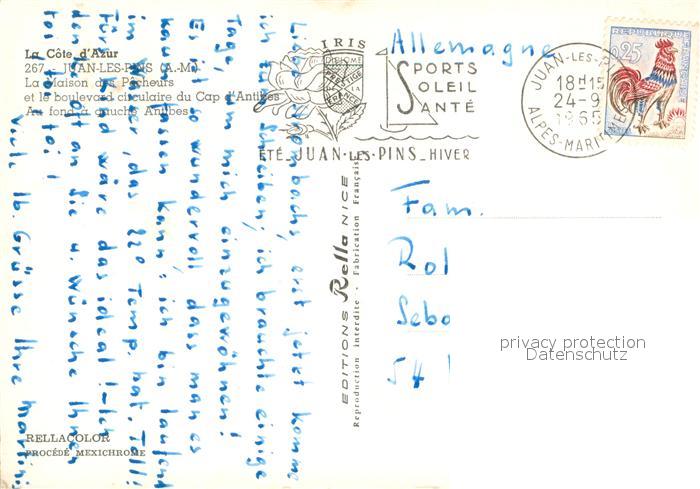 La Côte d'Azur
267 - JUAN-LES-PINS (A.-M.)
La Maison des Pêcheurs
et le boulevard circulaire du Cap d'Antibes
Au fond à gauche Antibes
IRIS
SPORTS
SOLEIL
SANTÉ
ÉTÉ_JUAN-LES-PINS_HIVER
JUAN-LES-PINS
18h15
24-9
1965
ALPES-MARITIMES
0,25
Allemagne
Fam.
Rol
Sebo
54
privacy protection
Datenschutz
EDITIONS Rella NICE
Reproduction interdite - Fabrication Française
RELLACOLOR
PROCÉDÉ MEXICHROME
Liebe erst jetzt komme
ich zum Schreiben; ich brauchte einige
Tage, um mich einzugewöhnen!
Es ist so wundervoll dass man es
kaum fassen kann: ich bin laufend
im Wasser, das 22° Temp. hat. Toll!
Für wäre das ideal! - Ich
denke oft an Sie u. wünsche Ihnen
toi toi toi!
Viele lb. Grüsse Ihre